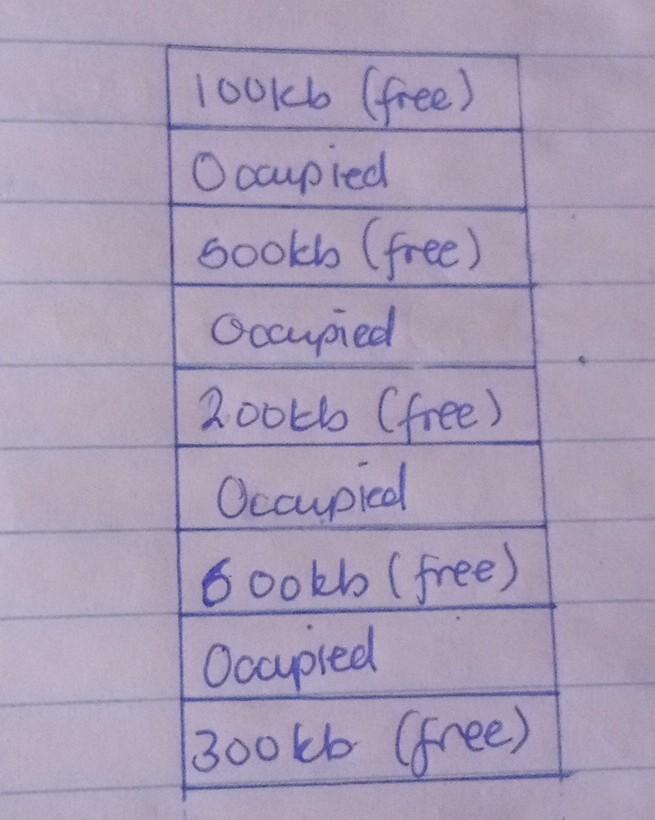 100kb (free)
Occupied
500kb (free)
Occupied
200kb (free)
Occupied
600kb (free)
Occupied
300kb (free)